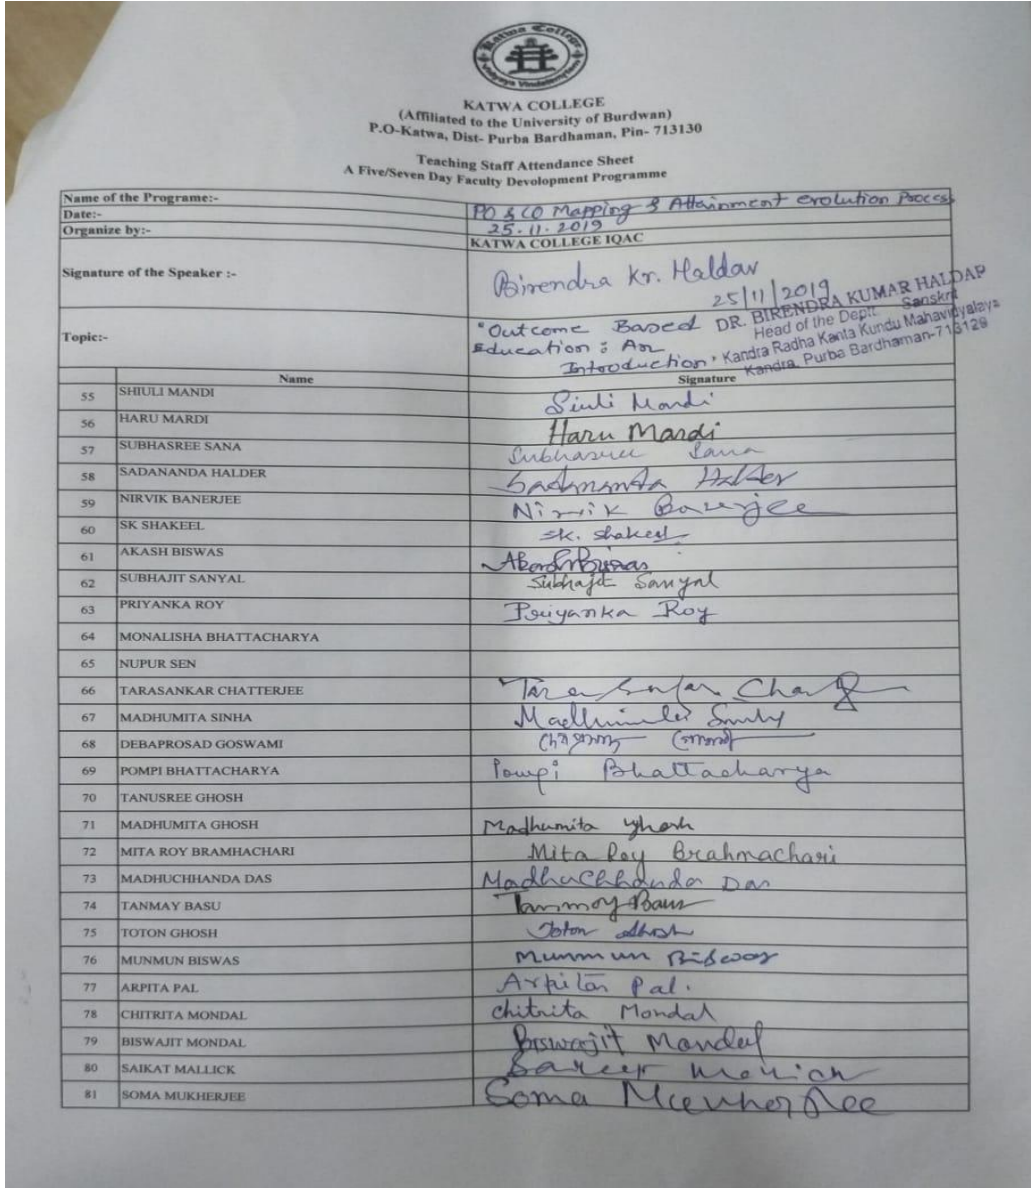 Katwa College
Vidyaya Vindatemritam
KATWA COLLEGE
(Affiliated to the University of Burdwan)
P.O-Katwa, Dist- Purba Bardhaman, Pin- 713130
Teaching Staff Attendance Sheet
A Five/Seven Day Faculty Devolopment Programme
Name of the Programe:- PO & CO Mapping & Attainment evolution Process
Date:- 25.11.2019
Organize by:- KATWA COLLEGE IQAC
Signature of the Speaker :- Birendra Kr. Haldar
25/11/2019
DR. BIRENDRA KUMAR HALDAR
Head of the Deptt. Sanskrit
Kandra Radha Kanta Kundu Mahavidyalaya
Kandra, Purba Bardhaman-713129
Topic:- "Outcome Based
Education : An
Introduction"
Name Signature
55 SHIULI MANDI Siuli Mandi
56 HARU MARDI Haru Mardi
57 SUBHASREE SANA Subhasree Sana
58 SADANANDA HALDER Sadananda Halder
59 NIRVIK BANERJEE Nirvik Banerjee
60 SK SHAKEEL SK. Shakeel
61 AKASH BISWAS Akash Biswas
62 SUBHAJIT SANYAL Subhajit Sanyal
63 PRIYANKA ROY Priyanka Roy
64 MONALISHA BHATTACHARYA
65 NUPUR SEN
66 TARASANKAR CHATTERJEE
67 MADHUMITA SINHA Madhumita Sinha
68 DEBAPROSAD GOSWAMI
69 POMPI BHATTACHARYA Pompi Bhattacharya
70 TANUSREE GHOSH
71 MADHUMITA GHOSH Madhumita Ghosh
72 MITA ROY BRAMHACHARI Mita Roy Brahmachari
73 MADHUCHHANDA DAS Madhuchhanda Das
74 TANMAY BASU Tanmoy Basu
75 TOTON GHOSH Toton Ghosh
76 MUNMUN BISWAS Munmun Biswas
77 ARPITA PAL Arpita Pal.
78 CHITRITA MONDAL Chitrita Mondal
79 BISWAJIT MONDAL Biswajit Mondal
80 SAIKAT MALLICK
81 SOMA MUKHERJEE Soma Mukherjee